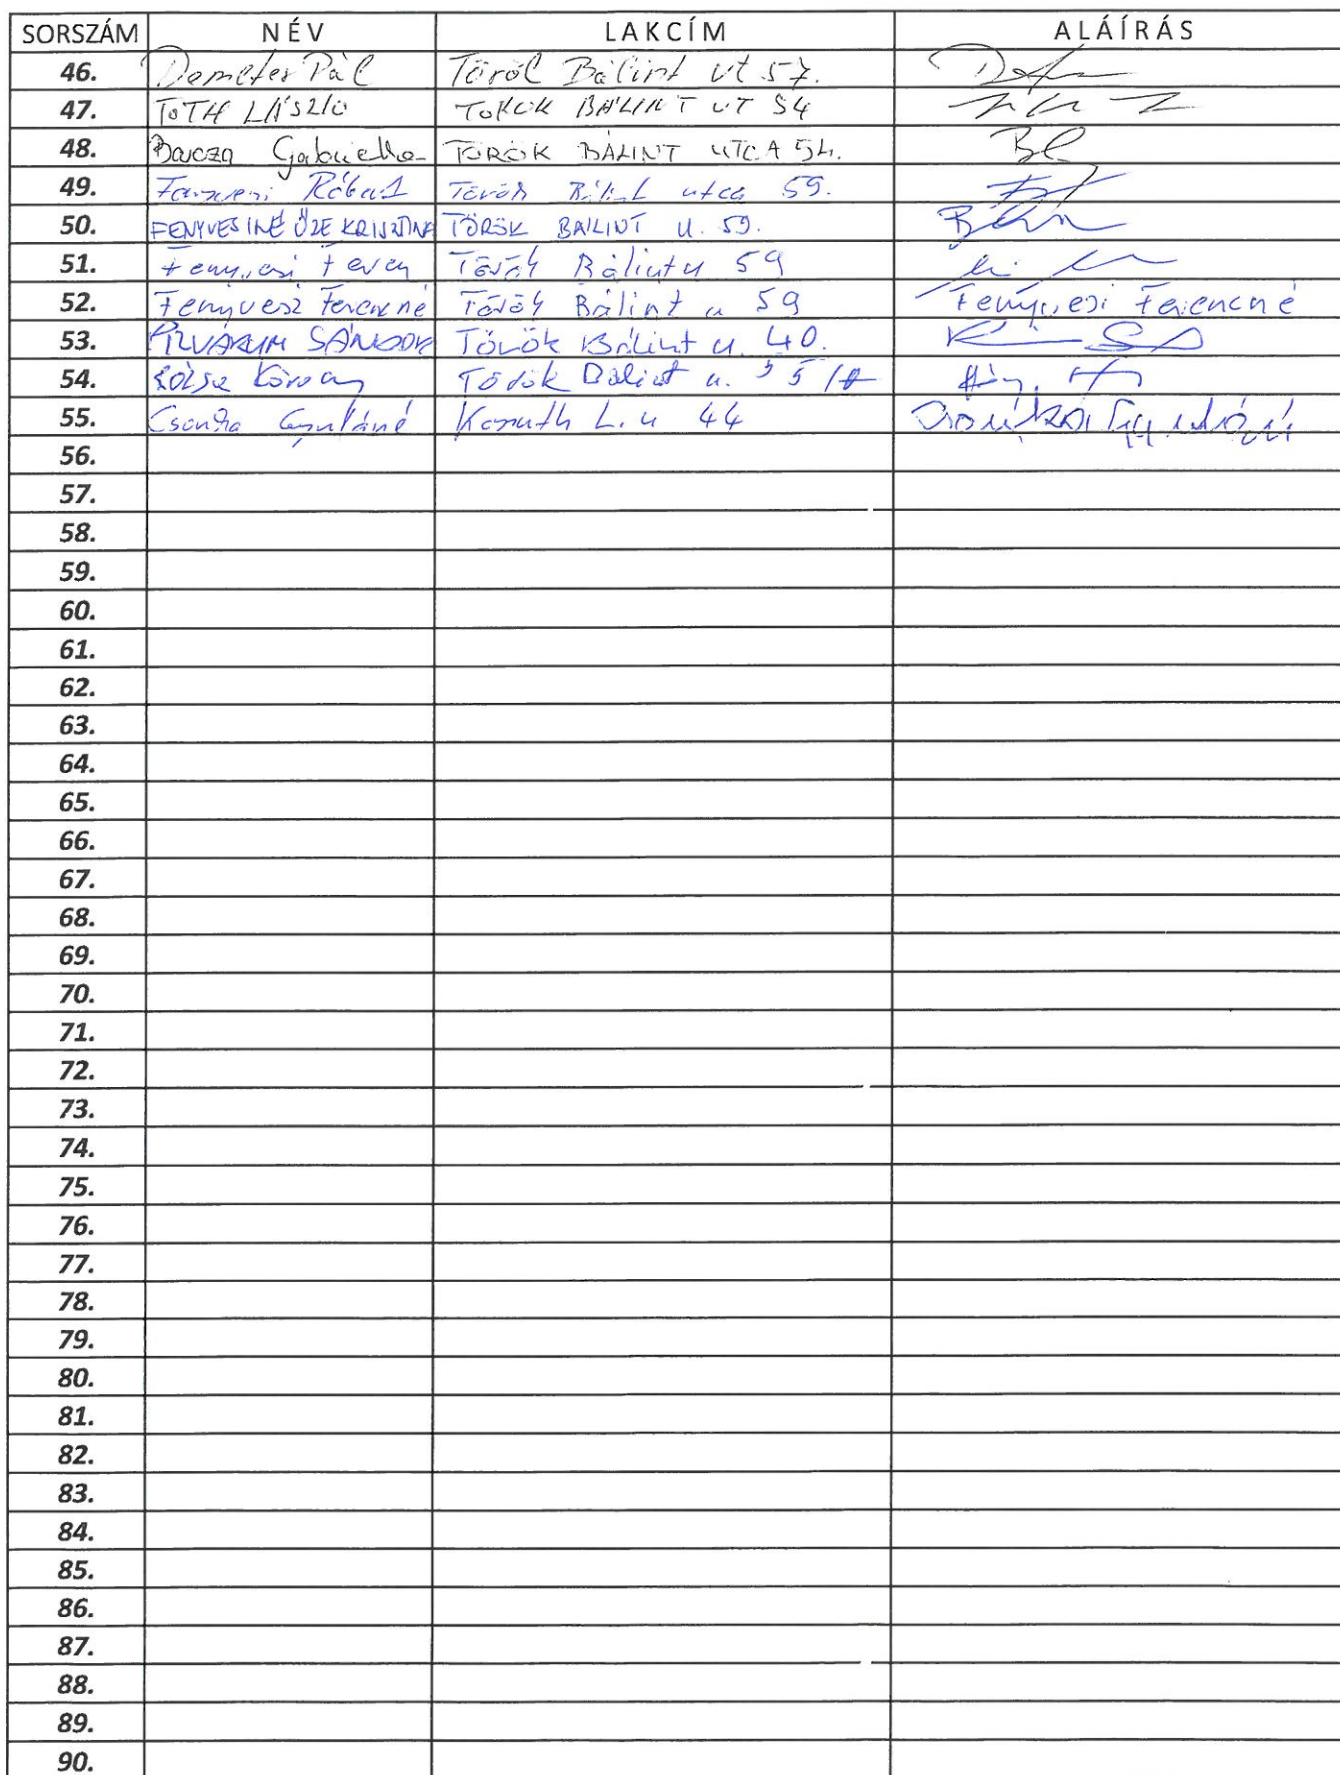 SORSZÁM NÉV LAKCÍM ALÁÍRÁS
46. Demeter Pál Töröl Bálint út 57.
47. TÓTH LÁSZLÓ TÖRÖK BÁLINT UT 54
48. Barcza Gabriella TÖRÖK BÁLINT UTCA 54.
49. Róbert Török Bálint utca 59.
50. FENYVESINÉ ŐZE KRISZTINA TÖRÖK BÁLINT U. 59.
51. Fenyvesi Török Bálint u 59
52. Fenyvesi Ferencné Török Bálint u 59 Fenyvesi Ferencné
53. SÁNDOR Török Bálint u. 40.
54. Török Bálint u.
55. Gyuláné Kossuth L. u 44
56.
57.
58.
59.
60.
61.
62.
63.
64.
65.
66.
67.
68.
69.
70.
71.
72.
73.
74.
75.
76.
77.
78.
79.
80.
81.
82.
83.
84.
85.
86.
87.
88.
89.
90.